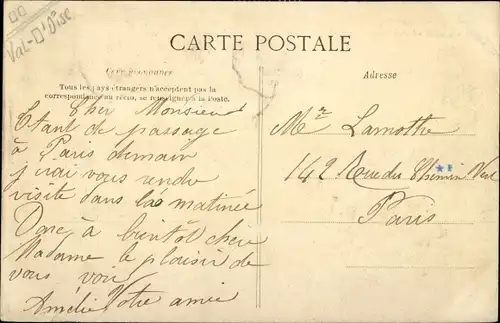 Val-D'Oise
CARTE POSTALE
Correspondance
Tous les pays étrangers n'acceptent pas la
correspondance au recto, se renseigner à la Poste.
Adresse
Cher Monsieur
Etant de passage
à Paris demain
j'irai vous rendre
visite dans la matinée
Donc à bientôt chère
Madame le plaisir de
vous voir
Amélie Votre amie
Mr Lamothe
142 Rue du Chemin Vert
Paris